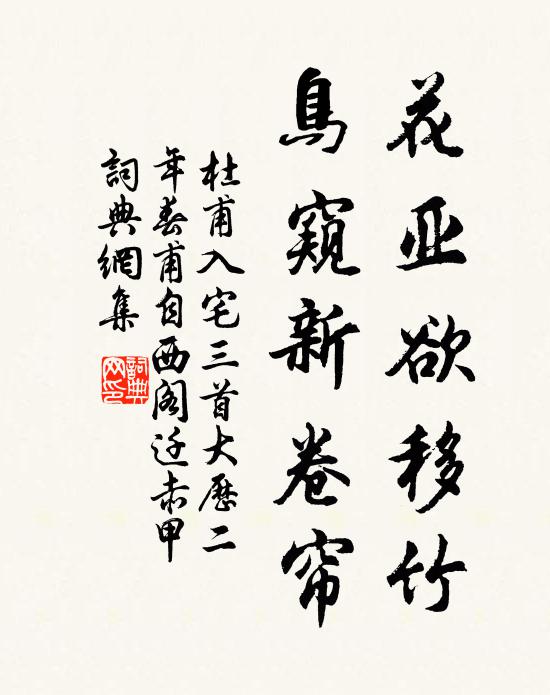 花亚欲移竹
鳥窺新卷帘
杜甫入宅三首大歷二
年春甫自西阁迁赤甲
詞典網集
詞典网印